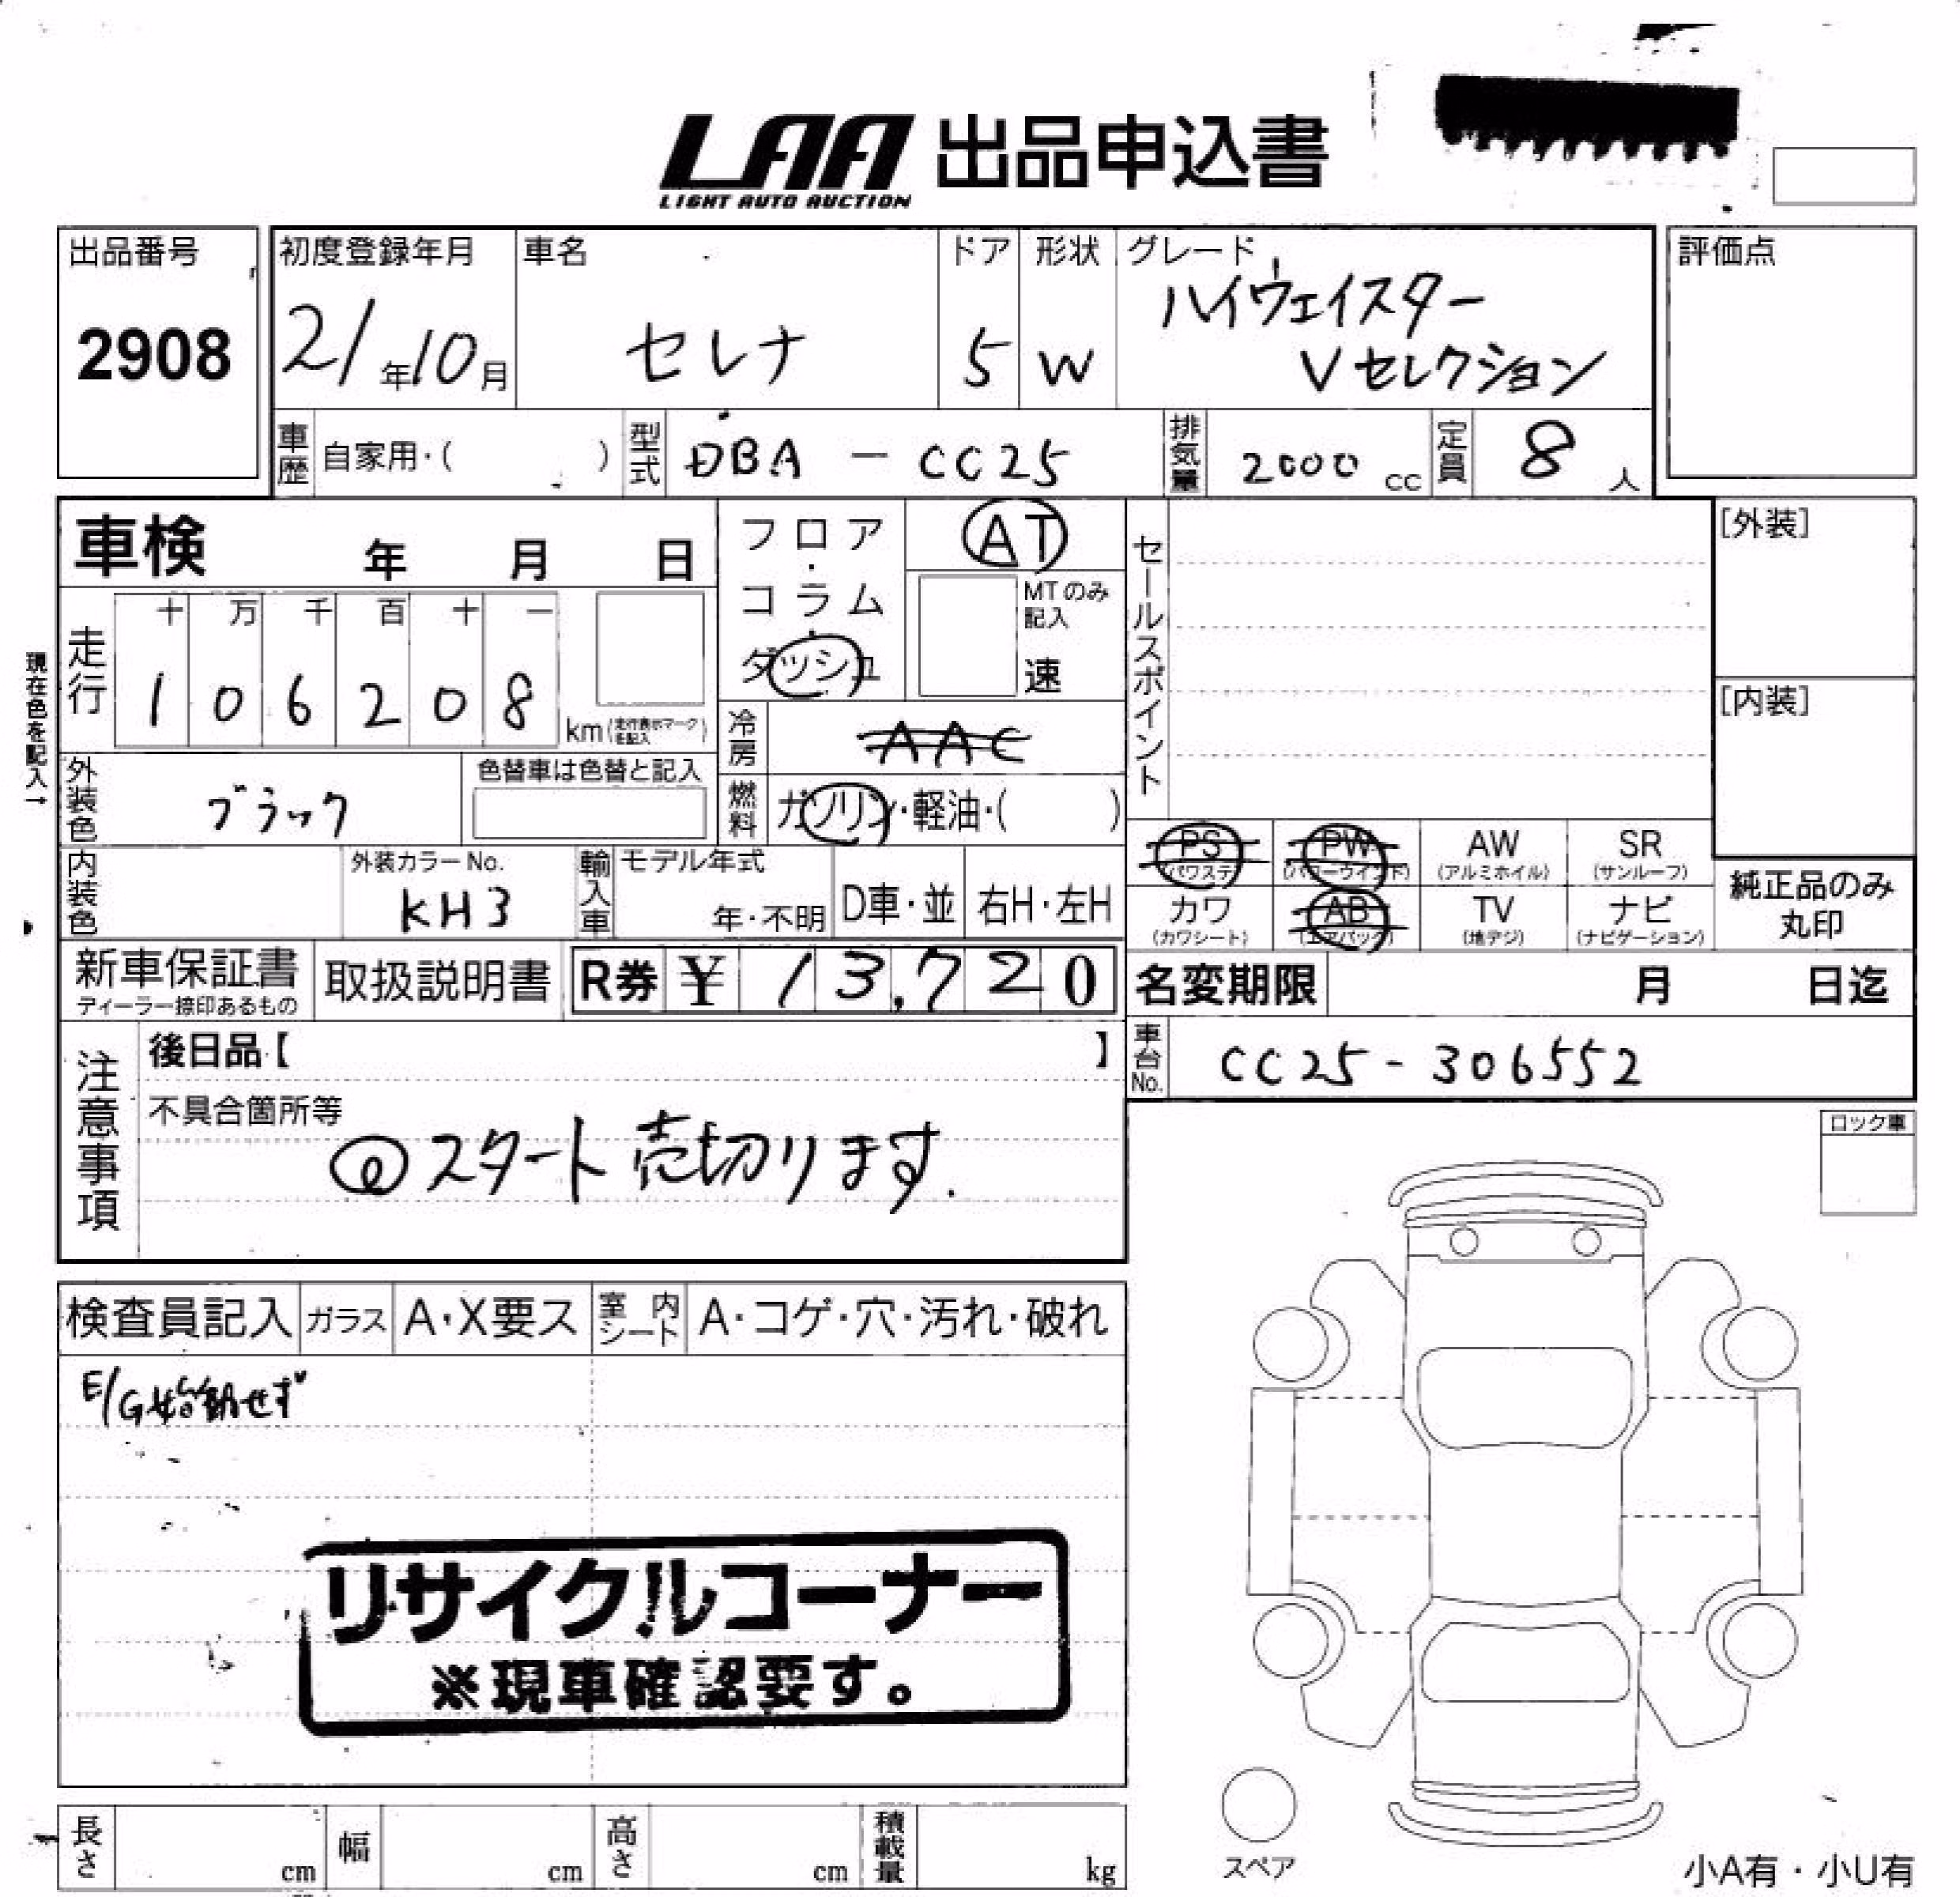 LAA 出品申込書
LIGHT AUTO AUCTION
出品番号
2908
初度登録年月
21年10月
車名
セレナ
ドア
5
形状
W
グレード
ハイウェイスター
Vセレクション
評価点
車歴 自家用・( )
型式 DBA - CC25
排気量 2000 cc
定員 8 人
車検 年 月 日
フロア・コラム・ダッシュ
AT
MTのみ記入
速
セールスポイント
[外装]
[内装]
現在色を記入→
走行
十 万 千 百 十 一
1 0 6 2 0 8
km(走行表示マークを記入)
冷房 AAC
外装色 ブラック
色替車は色替と記入
燃料 ガソリン・軽油・( )
内装色
外装カラーNo.
KH3
輸入車
モデル年式
年・不明
D車・並
右H・左H
PS (パワステ)
PW (パワーウインド)
AW (アルミホイル)
SR (サンルーフ)
カワ (カワシート)
AB (エアバック)
TV (地デジ)
ナビ (ナビゲーション)
純正品のみ
丸印
新車保証書
ディーラー捺印あるもの
取扱説明書
R券 ¥ 13,720
名変期限 月 日迄
車台No. CC25-306552
注意事項
後日品【 】
不具合箇所等
スタート売切ります.
ロック車
検査員記入
ガラス A・X要ス
室内シート A・コゲ・穴・汚れ・破れ
E/G始動せず
リサイクルコーナー
※現車確認要す。
スペア
長さ cm
幅 cm
高さ cm
積載量 kg
小A有・小U有